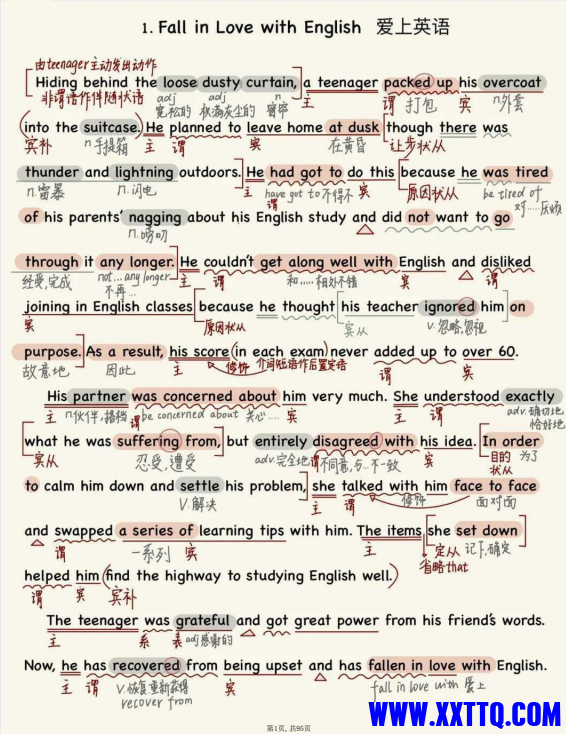 1. Fall in Love with English 爱上英语
由teenager主动发出动作
[Hiding behind the loose dusty curtain,] a teenager packed up his overcoat
非谓语作伴随状语 adj 宽松的 adj 积满灰尘的 n. 窗帘 主 谓 打包 宾 n.外套
(into the suitcase.) He planned to leave home at dusk [though there was
宾补 n.手提箱 主 谓 宾 在黄昏 让步状从
thunder and lightning outdoors.] He had got to do this [because he was tired
n.雷暴 n.闪电 主 have got to 不得不 谓 宾 原因状从 be tired of
of his parents' nagging about his English study and did not want to go
n.唠叨 对……厌烦
through it any longer.] He couldn't get along well with English and disliked
经受,完成 not...any longer 不再… 主 谓 和……相处不错 宾 谓
joining in English classes [because he thought [his teacher ignored him] on
宾 原因状从 宾从 v.忽略,忽视
purpose.] As a result, his score (in each exam) never added up to over 60.
故意地 因此 主 修饰 介词短语作后置定语 谓 宾
His partner was concerned about him very much. She understood exactly
主 n.伙伴,搭档 谓 be concerned about 关心…. 宾 主 谓 adv.确切地 恰好地
[what he was suffering from,] but entirely disagreed with his idea. [In order
宾从 忍受,遭受 adv.完全地 谓 不同意,与…不一致 宾 目的状从 为了
to calm him down and settle his problem,] she talked with him face to face
V.解决 主 谓 修饰 面对面
and swapped a series of learning tips with him. The items [she set down]
谓 一系列 宾 主 定从 记下,确定
省略that
helped him (find the highway to studying English well.)
谓 宾 宾补
The teenager was grateful and got great power from his friend's words.
主 系 表 adj感谢的
Now, he has recovered from being upset and has fallen in love with English.
主 谓 v.恢复,重新获得 宾 fall in love with 爱上
recover from
WWW.XXTTQ.COM
第1页, 共95页